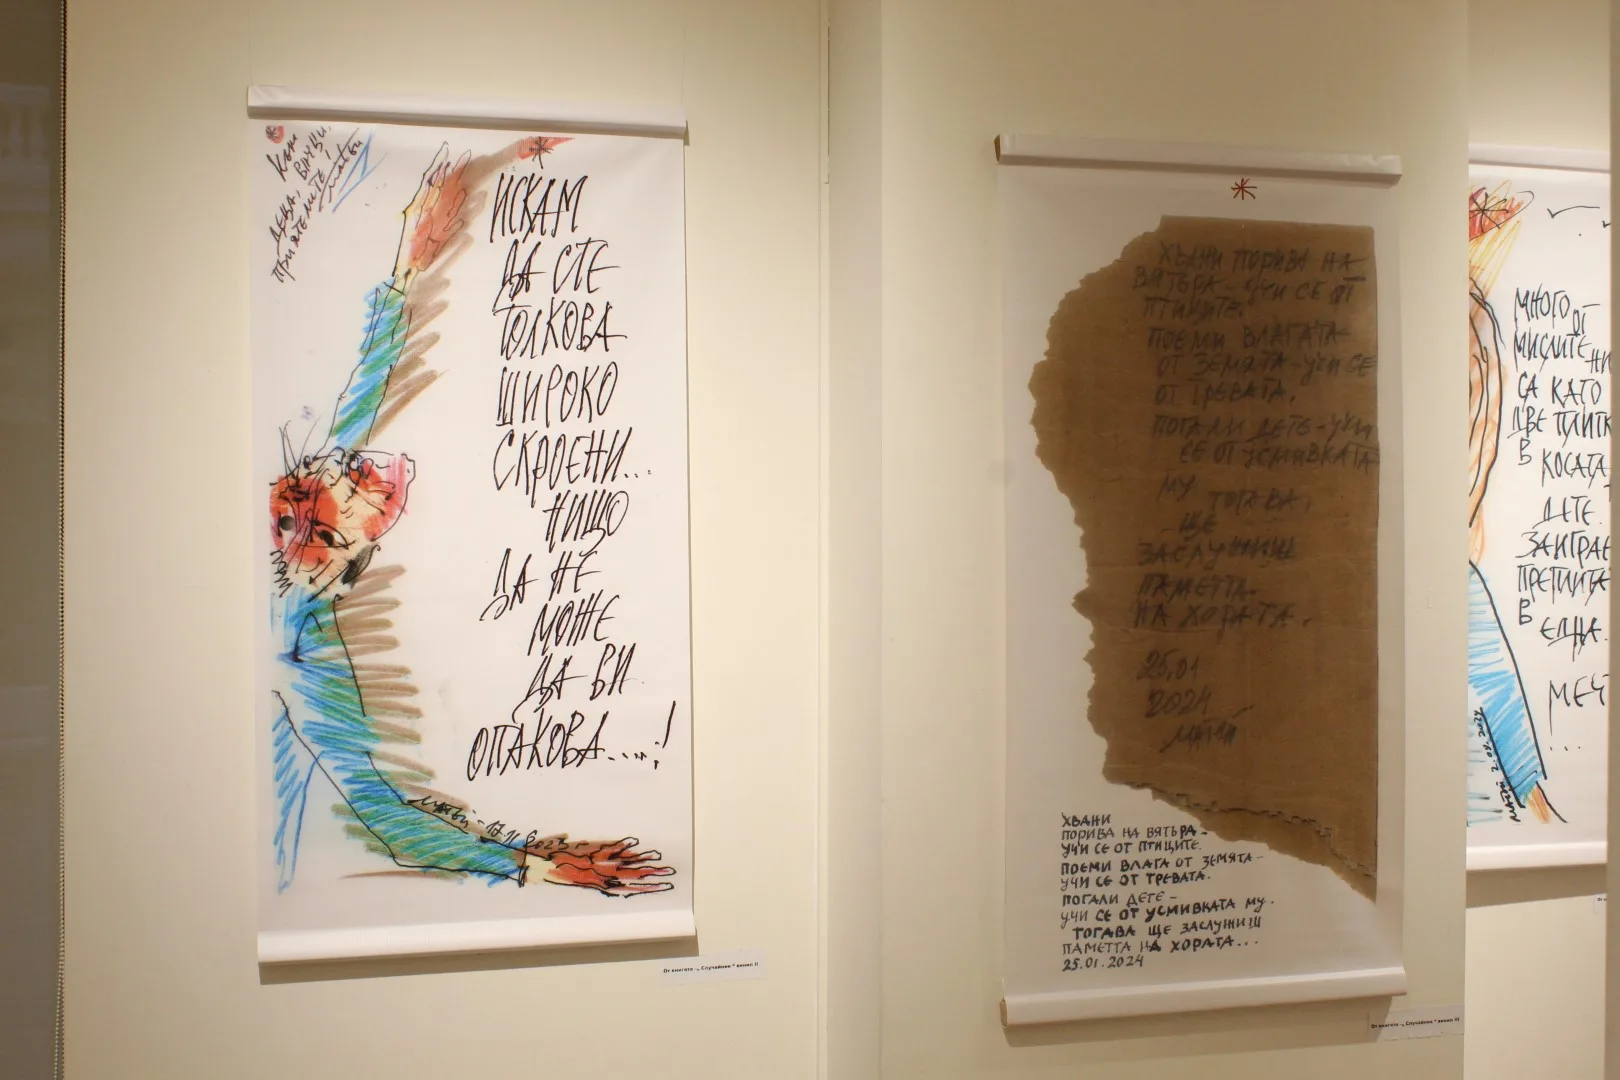 Към
деца, внуци,
приятелите!
Матей
*
ИСКАМ
ДА СТЕ
ТОЛКОВА
ШИРОКО
СКРОЕНИ...
НИЩО
ДА НЕ
МОЖЕ
ДА ВИ
ОПАКОВА....!
МАТЕЙ - 17.11.2023 г
От книгата -„ Случайник " винил II
*
ХВАНИ ПОРИВА НА
ВЯТЪРА - УЧИ СЕ ОТ
ПТИЦИТЕ.
ПОЕМИ ВЛАГАТА
ОТ ЗЕМЯТА - УЧИ СЕ
ОТ ТРЕВАТА.
ПОГАЛИ ДЕТЕ - УЧИ
СЕ ОТ УСМИВКАТА
МУ ТОГАВА,
ЩЕ
ЗАСЛУЖИШ
ПАМЕТТА
НА ХОРАТА.
25.01
2024
МАТЕЙ
ХВАНИ
ПОРИВА НА ВЯТЪРА -
УЧИ СЕ ОТ ПТИЦИТЕ.
ПОЕМИ ВЛАГА ОТ ЗЕМЯТА -
УЧИ СЕ ОТ ТРЕВАТА.
ПОГАЛИ ДЕТЕ -
УЧИ СЕ ОТ УСМИВКАТА МУ.
ТОГАВА ЩЕ ЗАСЛУЖИШ
ПАМЕТТА НА ХОРАТА...
25.01.2024
От книгата -„ Случайник " винил III
МНОГО -
ОТ
МИСЛИТЕ НИ
СА КАТО
ДВЕ ПЛИТК
В КОСАТА
ДЕТЕ.
ЗАИГРАЕ
ПРЕПЛИТА
В
ЕДНА.
МЕЧ
...
МАТЕЙ 2.09.2024